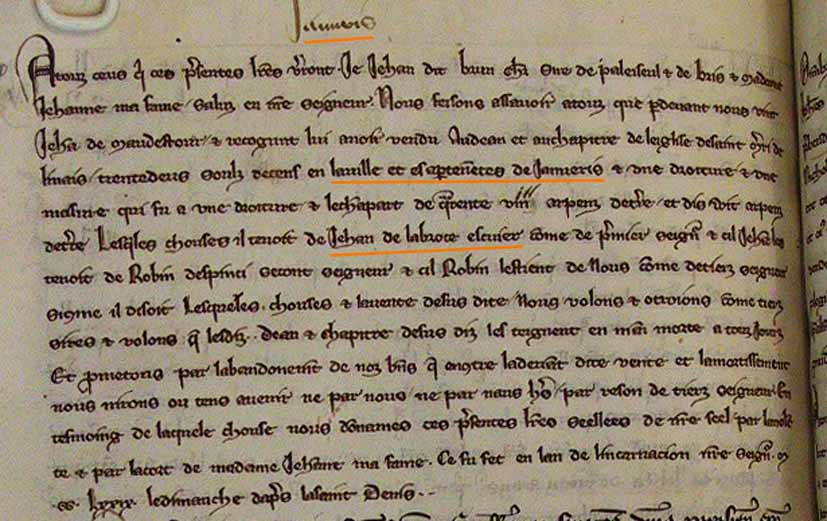 Janveris
Atouz ceus q̃ ces p̃sentes lr̃es v̾ront. Je Jehan dit brun chl̾r Sire de paleiseul & de bris & madame
Jehanne ma fame . Saluz en nr̃e seigneur. Nous fesons assavoir atouz que pdevant nous vint
Jehã de maudestour & recognut lui avoir vendu Audean et auchapitre de leiglise desaint de
linais . trentedeus souz decens en laville et es apartenẽces de Janveris & une droiture & une
masure qui fu a une droiture & lechapart de q̃rente viii arpenz det̃re . et dis uit arpenz
det̃re Lesq̃les chouses il tenoit de Jehan de labroce escuier cõme de p̃mier seign̾ & cil Jehã les
tenoit de Robin despinci secont seigneur & cil Robin lestient de Nous cõme detierz seigneur
si cõme il disoit Lesqueles . chouses & lavente desus dite Nous volons & otroions cõme tierz
sires & volons q̃ lesdiz . . Dean & chapitre desus diz les teignent en main morte a touz jourz
Et p̃metons par labandonem̃t de noz biẽs q̃ encõtre ladevant dite vente et lamortissement
nous nirons ou tens avenir ne par nous / ne par noz hrs̃ / par reson de tierz seigneur . En
tesmoing de laquele chouse nous dõnames ces p̃sentes lr̃es Seellees de nr̃e seel par lavolẽ
te & par lacort de madame Jehane ma fame . Ce fu fet en lan de lincarnacion nr̃e Seign̾. m
cc. Lxxix. ledimanche dap̃s lasaint Denis . .